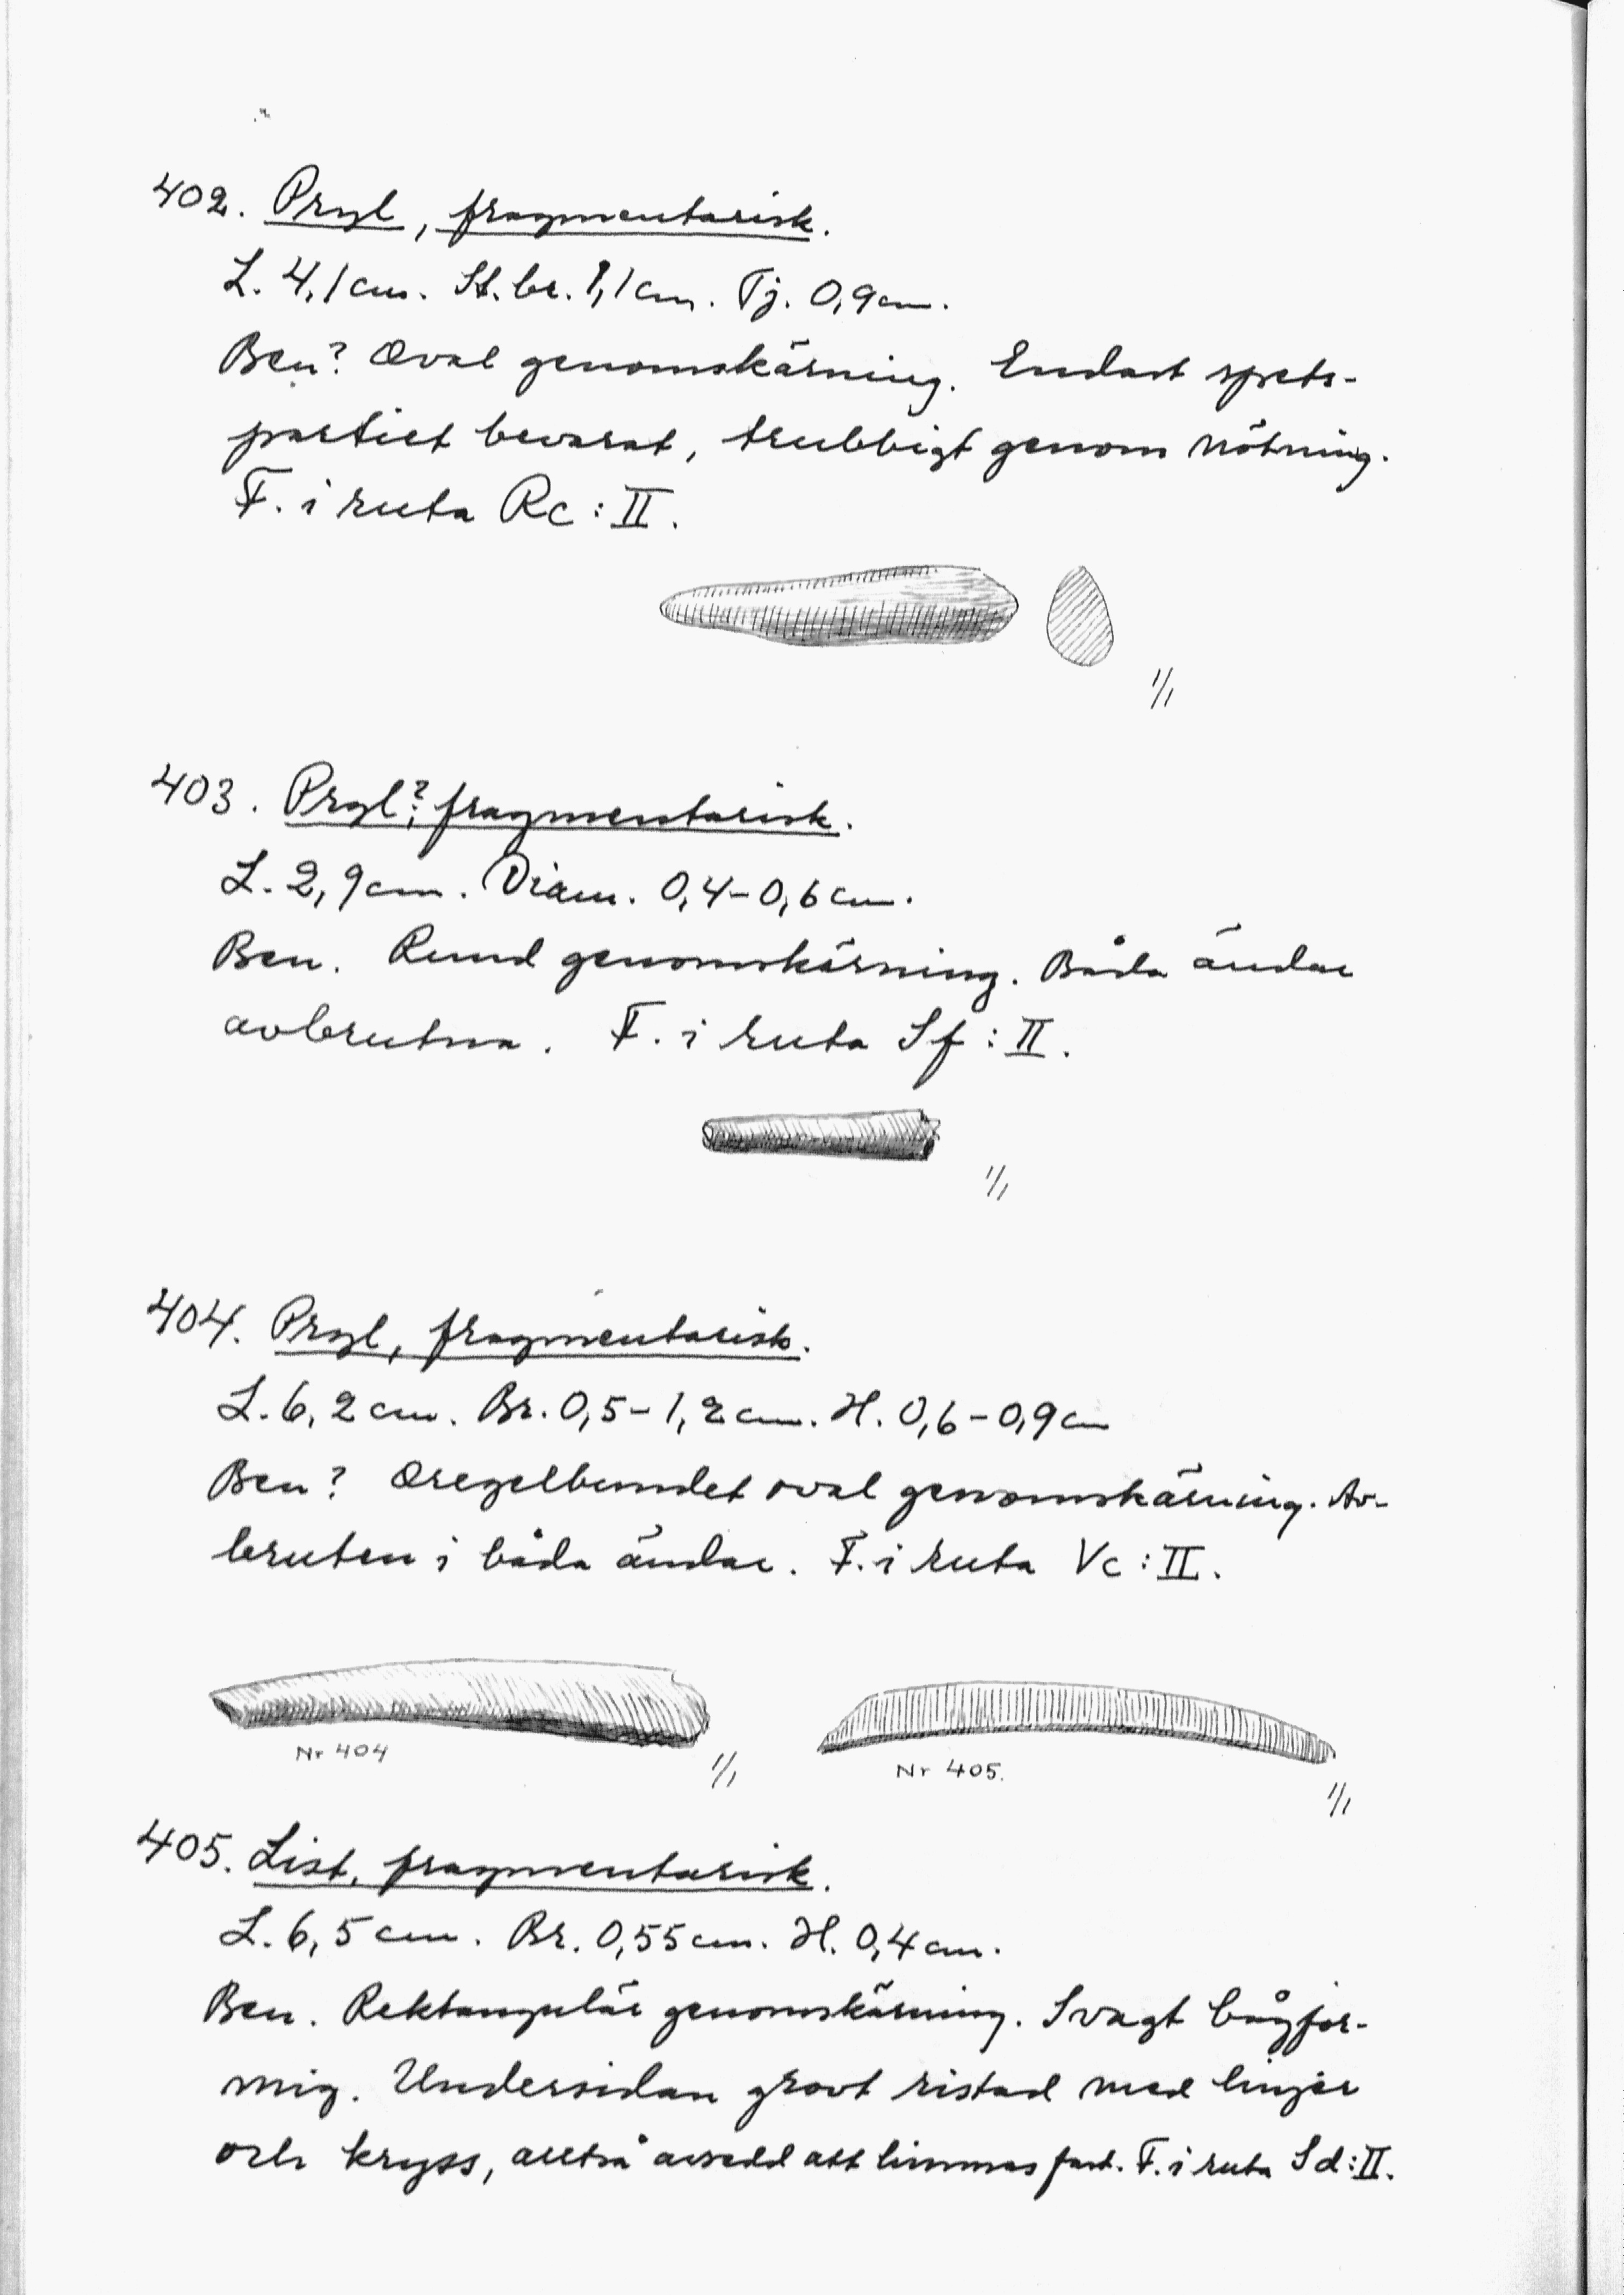 402. Pryl, fragmentarisk.
L. 4,1 cm. St. br. 1,1 cm. Tj. 0,9 cm.
Ben? Oval genomskärning. Endast spets-
partiet bevarat, trubbigt genom nötning.
F. i ruta Rc : II.
1/1
403. Pryl?, fragmentarisk.
L. 2,9 cm. Diam. 0,4-0,6 cm.
Ben. Rund genomskärning. Båda ändar
avbrutna. F. i ruta Sf : II.
1/1
404. Pryl, fragmentarisk.
L. 6,2 cm. Br. 0,5-1,2 cm. H. 0,6-0,9 cm
Ben? Oregelbundet oval genomskärning. Av-
bruten i båda ändar. F. i ruta Vc : II.
Nr 404
1/1
Nr 405.
1/1
405. List, fragmentarisk.
L. 6,5 cm. Br. 0,55 cm. H. 0,4 cm.
Ben. Rektangulär genomskärning. Svagt bågfor-
mig. Undersidan grovt ristad med linjer
och kryss, alltså avsedd att limmas fast. F. i ruta Sd : II.